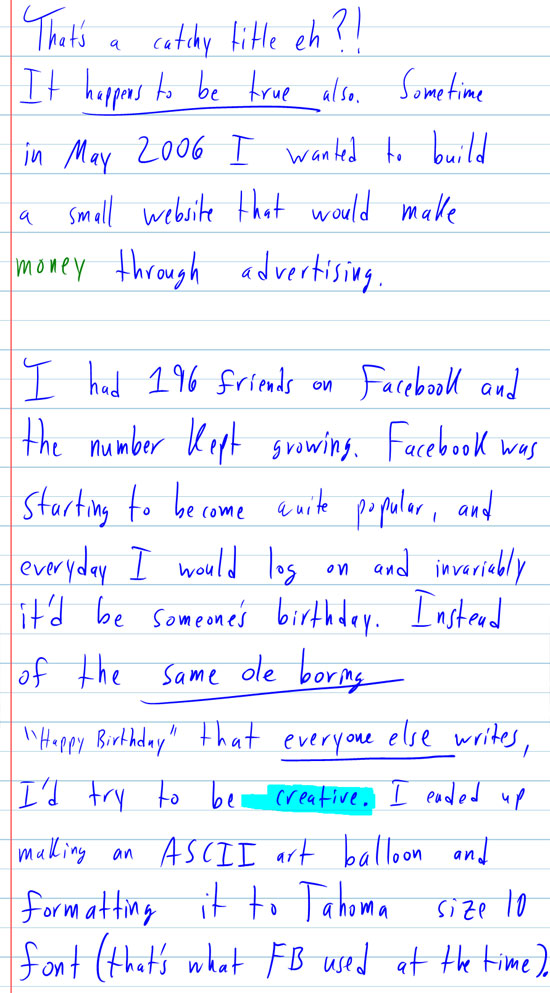 That's a catchy title eh?!
It happens to be true also. Sometime
in May 2006 I wanted to build
a small website that would make
money through advertising.
I had 196 friends on Facebook and
the number kept growing. Facebook was
starting to become quite popular, and
everyday I would log on and invariably
it'd be someone's birthday. Instead
of the same ole boring
"Happy Birthday" that everyone else writes,
I'd try to be creative. I ended up
making an ASCII art balloon and
formatting it to Tahoma size 10
font (that's what FB used at the time).